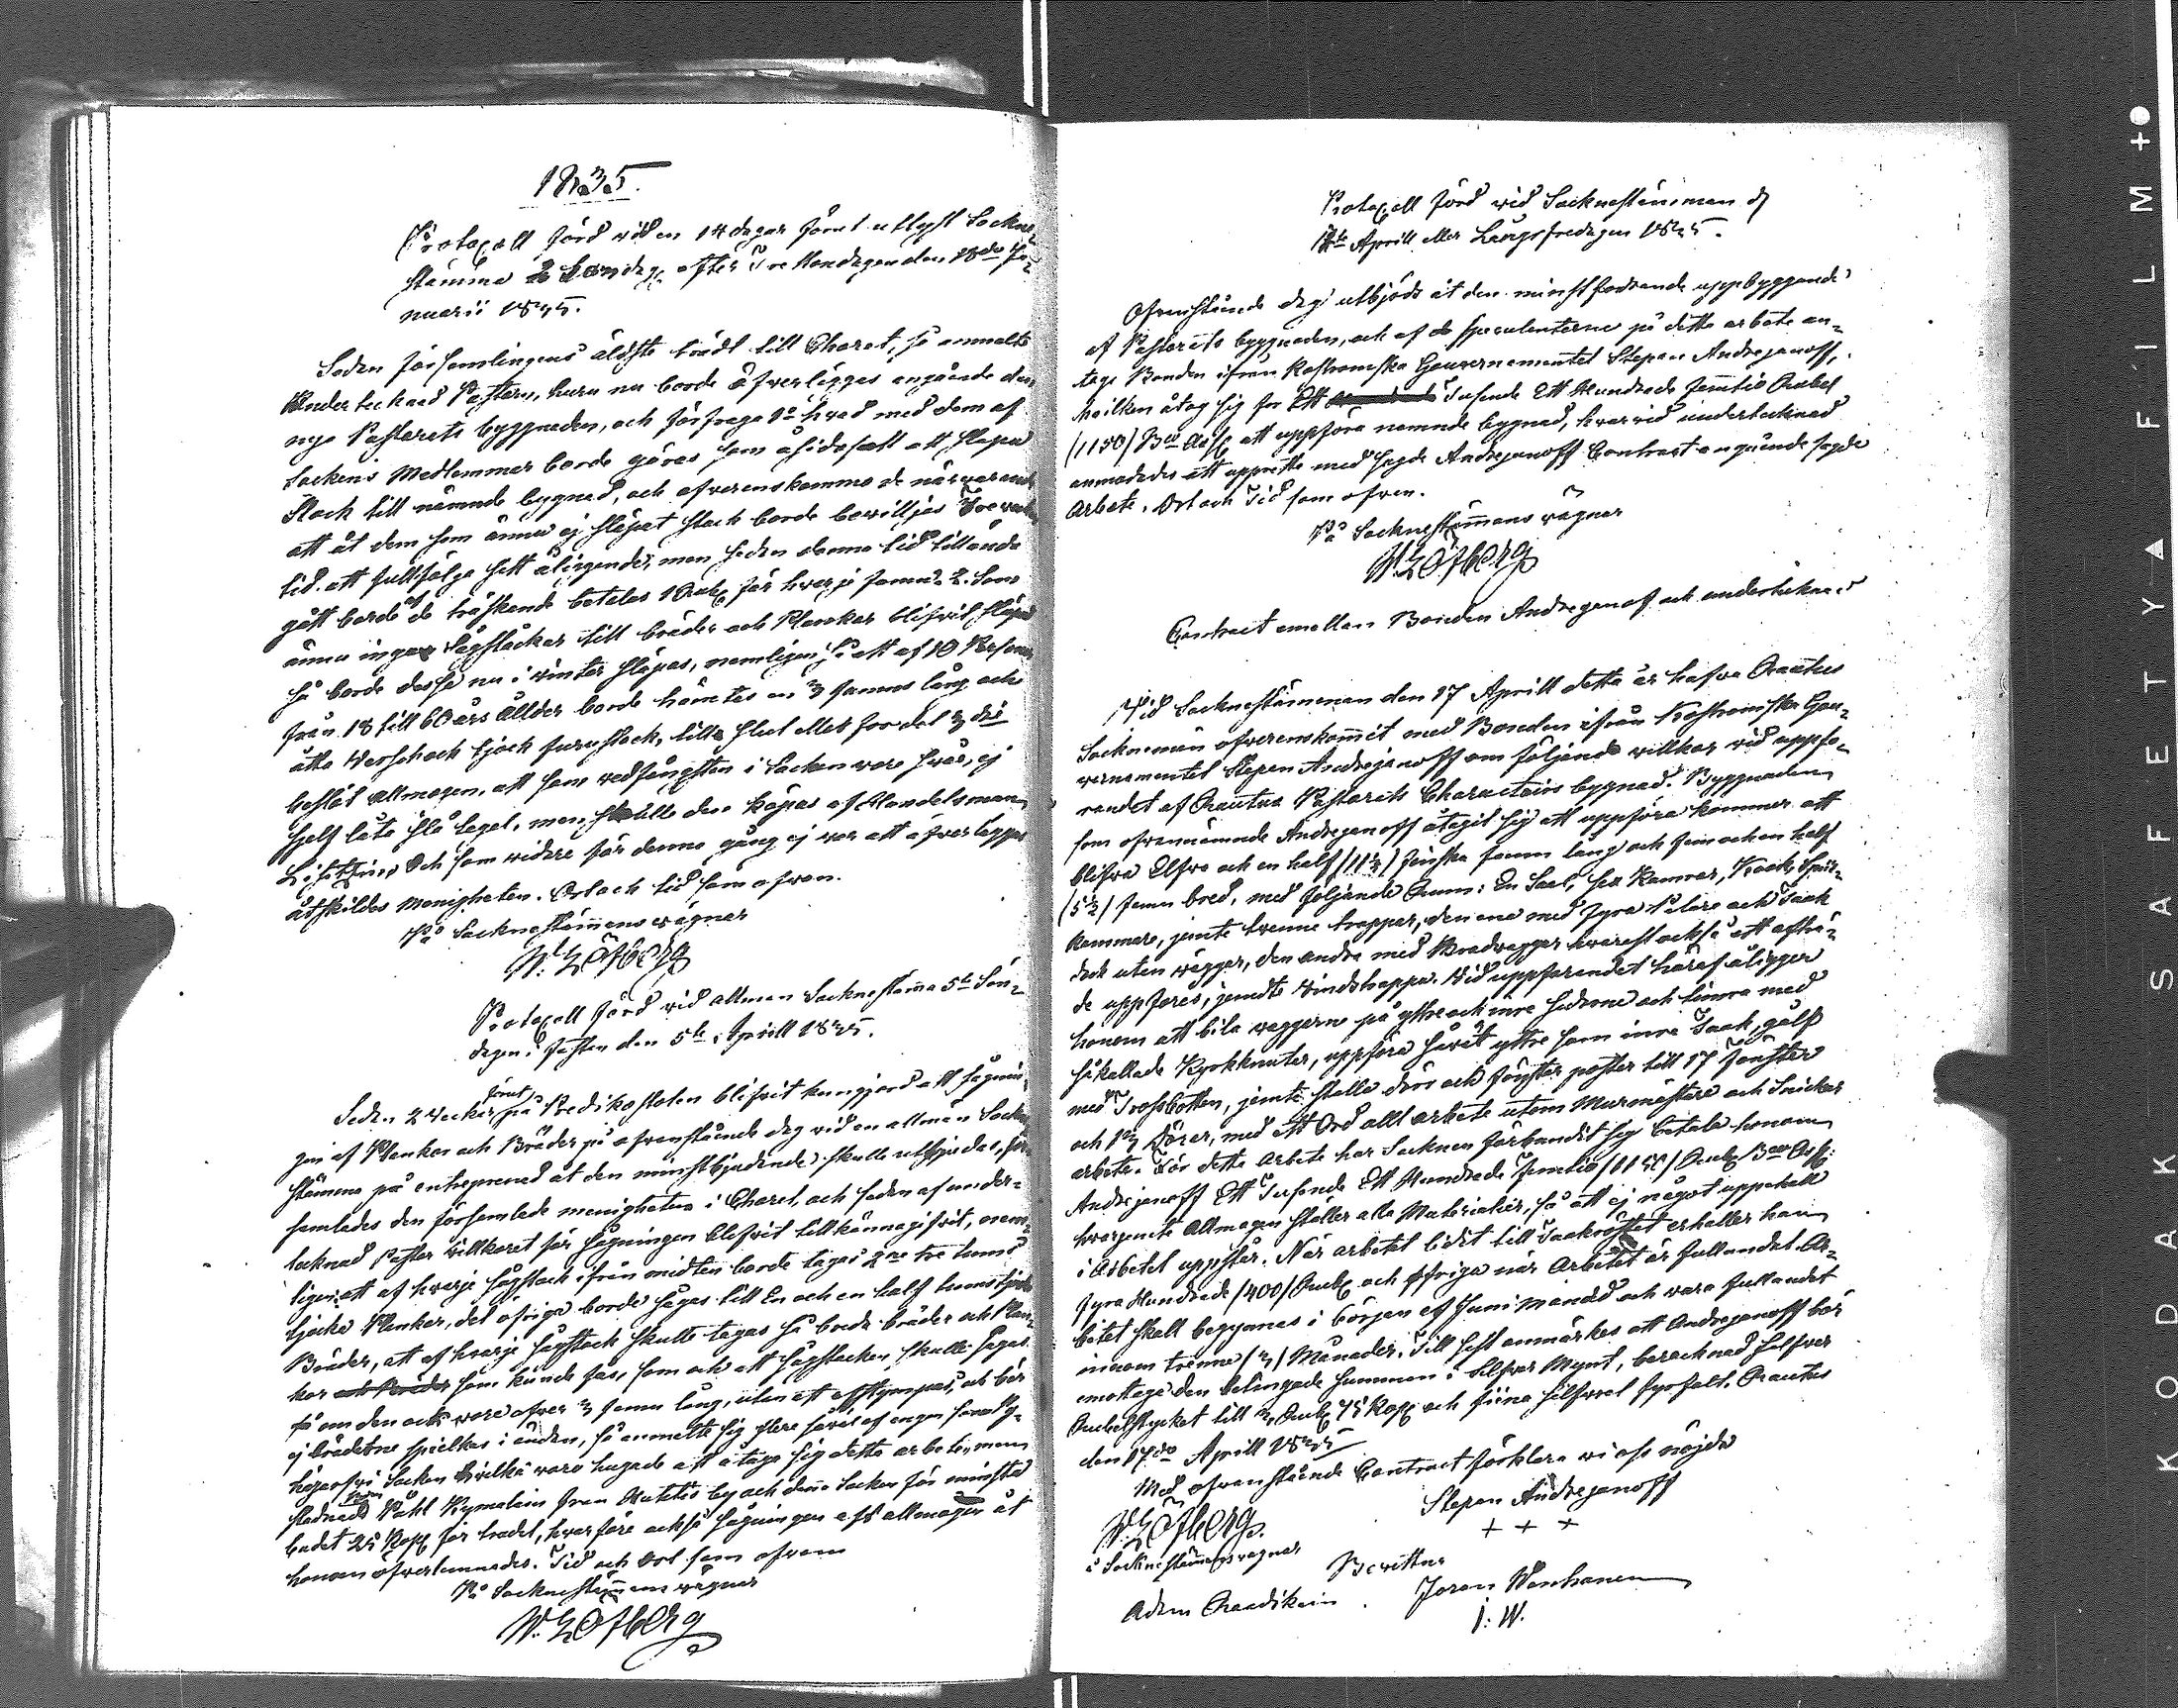 1835.
Protocoll förd vid en 14 dagar förut utlyst Sockne-
stämma 2 Sondag. efter Trettondagen den 18de Ja-
nuarii 1835.
Sedan församlingens äldste trädt till Choret, så anmälte
Undertecknad Pastor, huru nu borde öfverläggas angående den
nya Pastorats byggnaden, och förfraga 1o hvad med dem af
Sockens Medlemmar borde göras som åsidosatt att släpa
Stock till nämnde bygnad, och öfverenskommo de närvarande
att åt dem som ännu ej släpat stock borde beviljas Tre veckors
tid. att fullfölja sitt åliggande, men sedan denna tid tillända
gått borde af de tröskande betalas 1 Rub. för hvarje famn. 2. Som
ännu inga Sågstockar till bräder och Plankor blifvit släpad
så borde desse nu i vinter släpas, nemligen så att af 10 Personer
från 18 till 60 års ållder borde hämtas en 3 famnar lång och
åtta Verschock tjock furustock, till slut
beslöt allmogen, att som vedfångsten i Socken vore svår, ej
sjelf låta slå tegel, men skulle den köpas af Handelsman
Och som vidare för denna gång ej var att öfverläggas
åtskildes menigheten. Ort och tid som ofvan.
På Socknestämmans vägnar
W. Löfberg
Protocoll förd vid allmän Socknestämma 5te Sön-
dagen i fastan den 5te Aprill 1835.
Sedan 2 Veckor förut på Predikostolen blifvit kungjord att sågnin-
gen af Plankor och Bräder på ofvanstående dag vid en allmän Sockne
stämma på entreprenad åt den minstbjudande skulle utbjudas, för-
samlades den församlade menigheten i Choret, och sedan af under-
tecknad Pastor villkoret för sågningen blifvit tillkännagifvit, nem-
ligen att af hvarje sågstock ifrån midten borde tagas 2ne tre tums
tjocka Plankor, det öfriga borde sågas till En och en half tums tjocka
Bräder, att af hvarje sågstock skulle tagas så breda bräder och Plan-
kor som kunde fås, som och att sågstocken skulle sågas
så om den ock vore ofver 3 famn lång, utan att afstympas, och bör
ej brädetne spielkas i änden, så anmälte sig flere såväl af egen som Py-
häjerfvi Socken hvilka voro hugade att åtaga sig detta arbete, men
stadnade Påhl Kymalain från by och denna Socken för minsta
budet 25 Kop. för bradet, hvarföre också sågningen af allmogen åt
honom öfverlemnades. Tid och Ort som ofvan
På Socknestämmans vägnar
W. Löfberg
Protocoll förd vid Socknestämman d
Aprill eller Långfredagen 1835.
Ofvanstående dag utbjöds åt den minstfodrande uppbyggande
af Pastorats byggnaden, och af de speculanterne på detta arbete an-
togs Bonden ifrån Kostromska Gouvernementet Stepan Andrejanoff,
hvilken åtog sig för Ett Tusende Ett Hundrade femtio Rubel
(1150) Bco Ass att uppföra namnde bygnad, hvarvid undertecknad
anmodades att upprätta med sagde Andrejanoff Contract angående sagde
Arbete. Ort och Tid som ofvan.
På Socknestämmans vägnar
W. Löfberg
Contract emellan Bonden Andrejanof och undertecknad
Vid Socknestämman den 17 Aprill detta år hafva Rautus
Sockneman ofverenskommit med Bonden ifrån Kostromska Gou-
vernementet Stepan Andrejanoff om följande villkor vid uppfö-
randet af Rautus Pastorats Characteins bygnad. Byggnaden
som ofvannämnde Andrejanoff åtagit sig att uppföra kommer att
blifva Elfva och en half (11½) finska famn lång och fem och en half
(5½) famn bred, med följande Rum: En Saal, sex Kamrar, Kook, Spis-
kammare, jemte trenne trappor, den ena med fyra Pelare och Taak
dock utan väggar, den andra med Bradvaggar hvarest också ett afträ-
de uppföres, jemte Vindstrappa. Vid uppförandet häraf åligger
honom att bila vaggarne på yttre och inre sidorne och timra med
såkallade Kyrkknutar, uppföra såväl yttre som inre Taak, golf
med Trossbotten, jemte ställa dörr och fönster poster till 17 Fönster
och 13 Dörar, med ett Ord allt arbete utom Murmästare och Snickar
arbete. För detta Arbete har Socknen förbundit sig betala honom
Andrejanoff Ett Tusende Ett Hundrade Femtio (1150) Rub. Bco Ass:
hvarjemte Allmogen ställer alla Materialier, så att ej något uppehåll
i Arbetet uppstår. När arbetet lidit till Taakröstet erhåller han
fyra Hundrade (400) Rub. och öfriga när Arbetet är fulländat. Ar-
betet skall begynnas i början af Juni månad och vara fulländat
innom trenne (3) Månader. Till sist anmärkes att Andrejanoff bör
emottaga den betingade Summan i Silfver Mynt, beräcknad Silfver
Rubelstycket till 3 Rub. 75 Kop. och fiina silfvret fyrfalt. Rautus
den 17de Aprill 1835
Med ofvanstående Contract förklara vi oss nöjda
W. Löfberg.
å Socknestämmans vägnar
Stepan Andrejanoff
+ + +
Bevittna
Adam Raadikain. Joran Wanhanen
I: W.
KODAK SAFETY ▲ FILM +●